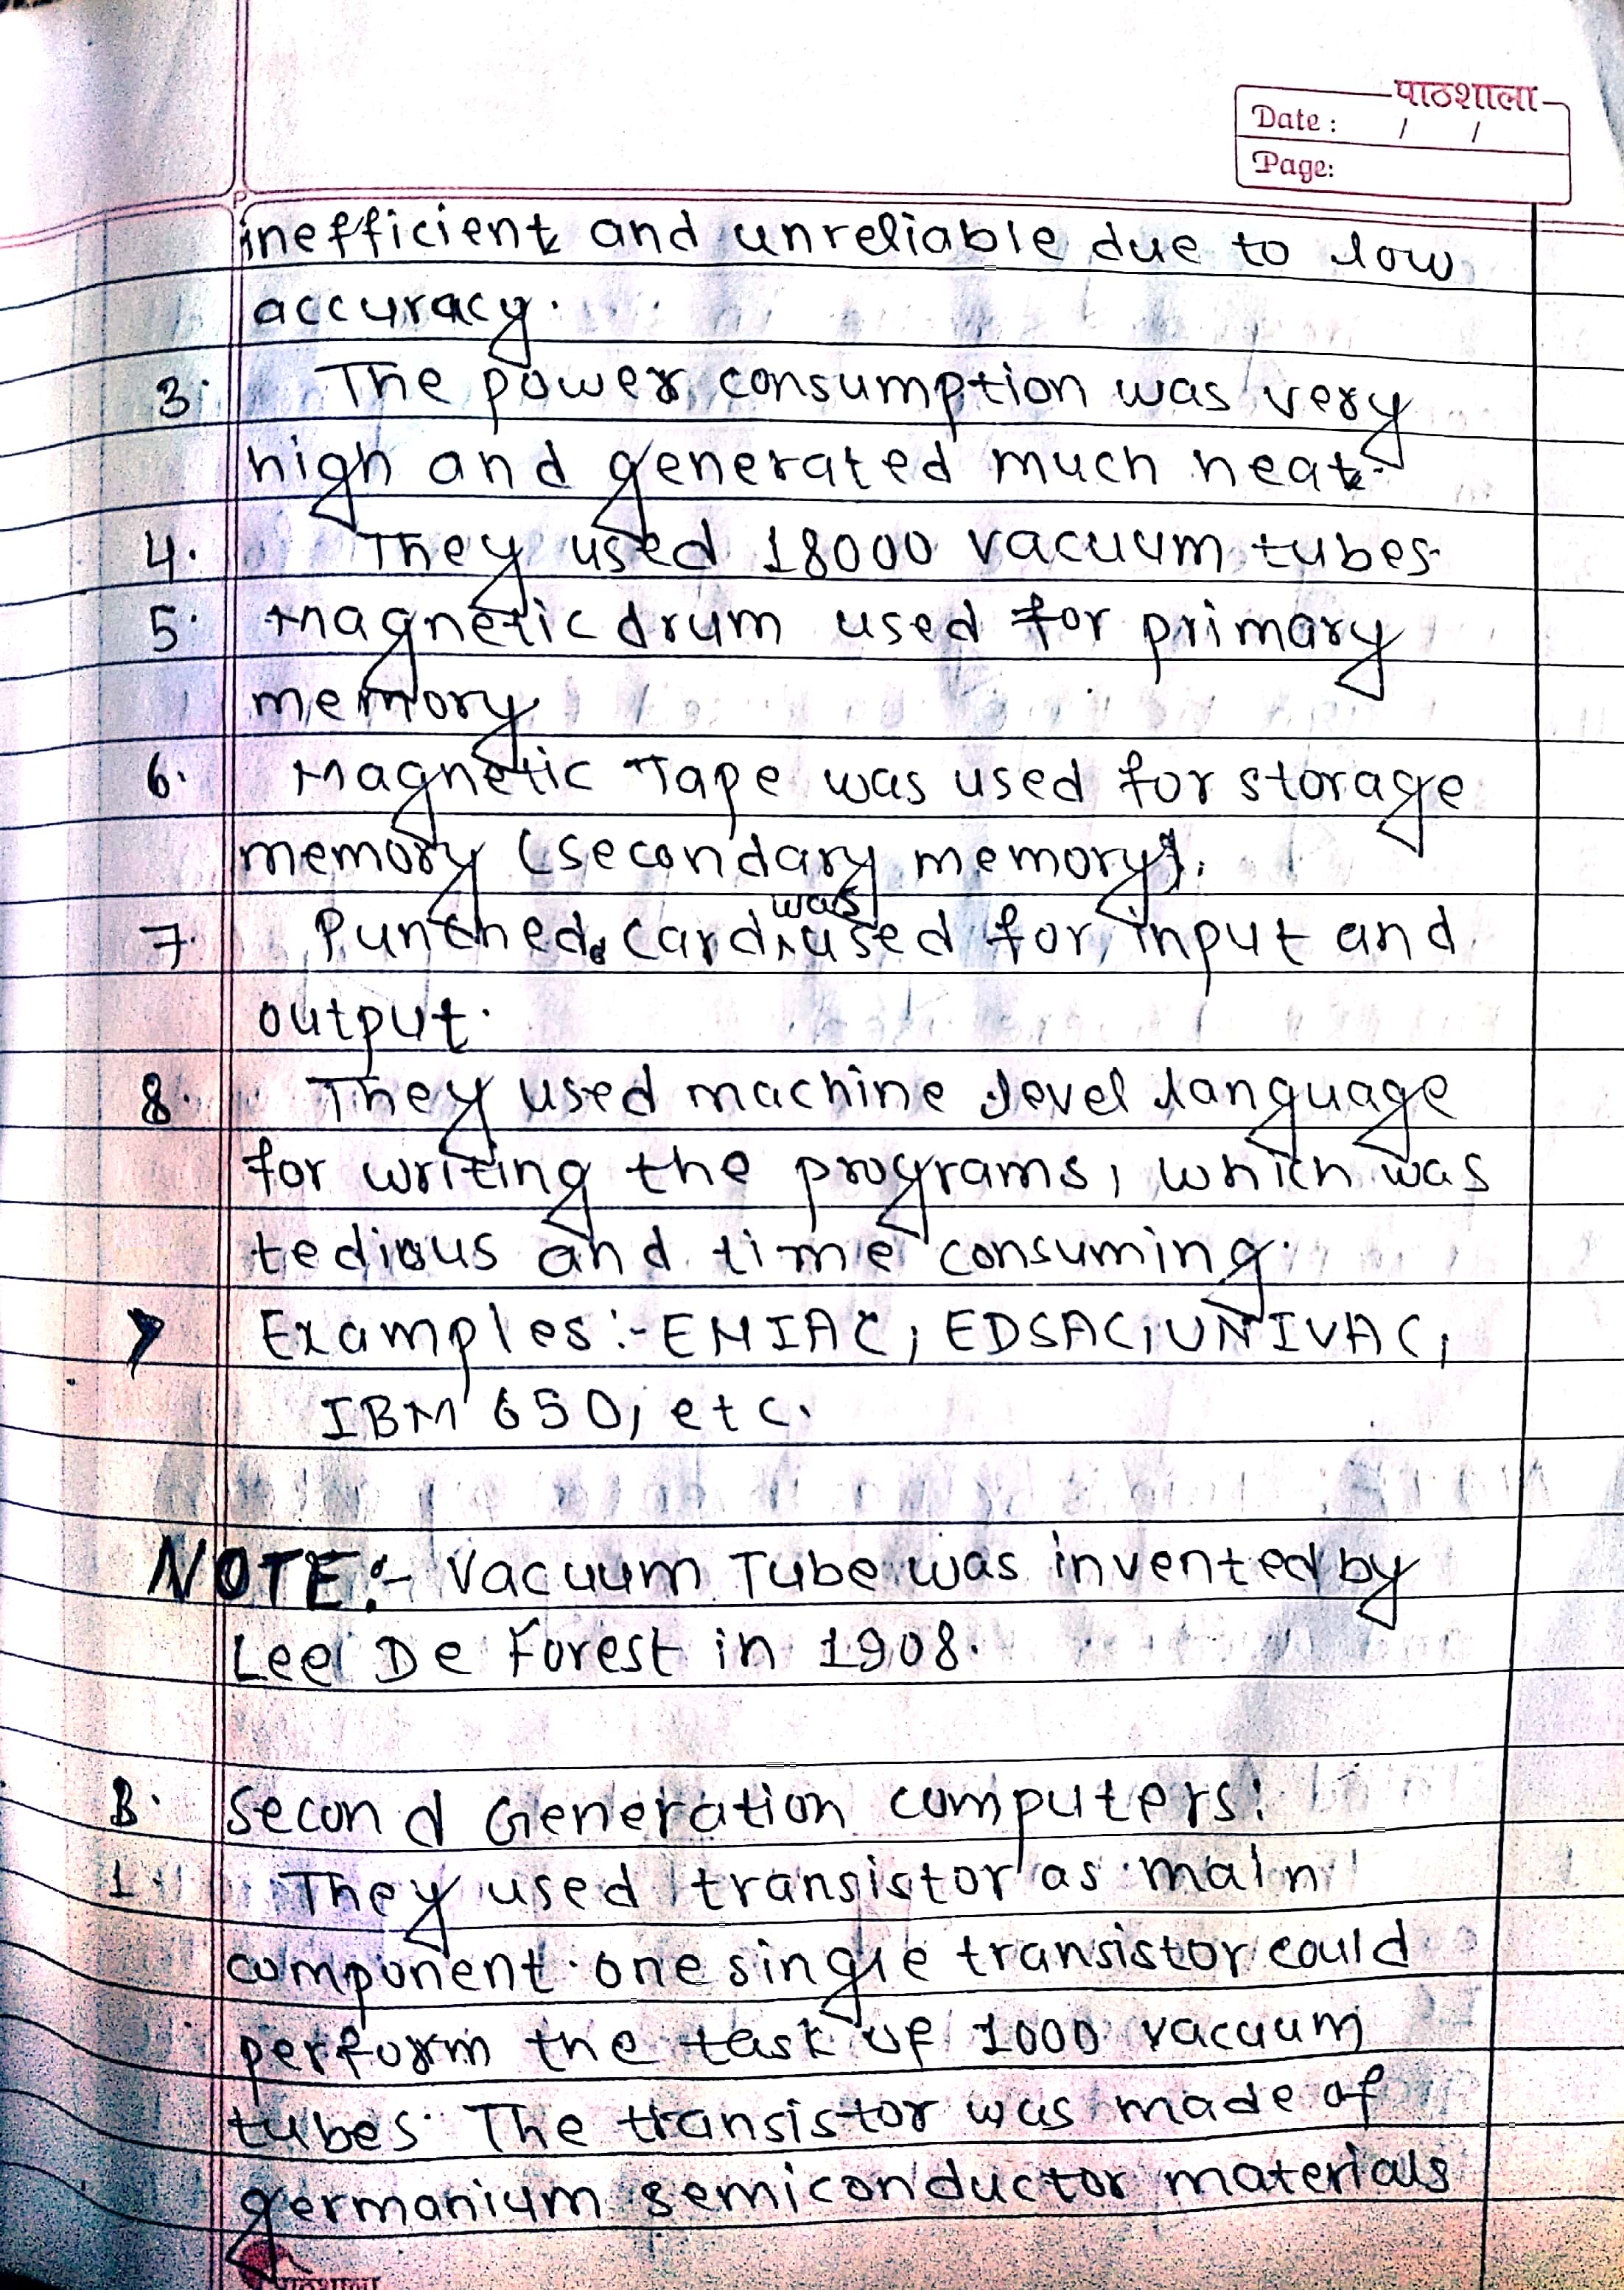 पाठशाला
Date : / /
Page:
inefficient and unreliable due to low
accuracy.
3. The power consumption was very
high and generated much heat.
4. They used 18000 vacuum tubes.
5. Magnetic drum used for primary
memory.
6. Magnetic Tape was used for storage
memory (secondary memory).
7. Punched card was used for input and
output.
8. They used machine level language
for writing the programs, which was
tedious and time consuming.
Examples:- ENIAC, EDSAC, UNIVAC,
IBM 650, etc.
NOTE:- Vacuum Tube was invented by
Lee De Forest in 1908.
B. Second Generation computers:
1. They used transistor as main
component. one single transistor could
perform the task of 1000 vacuum
tubes. The transistor was made of
germanium semiconductor materials
पाठशाला